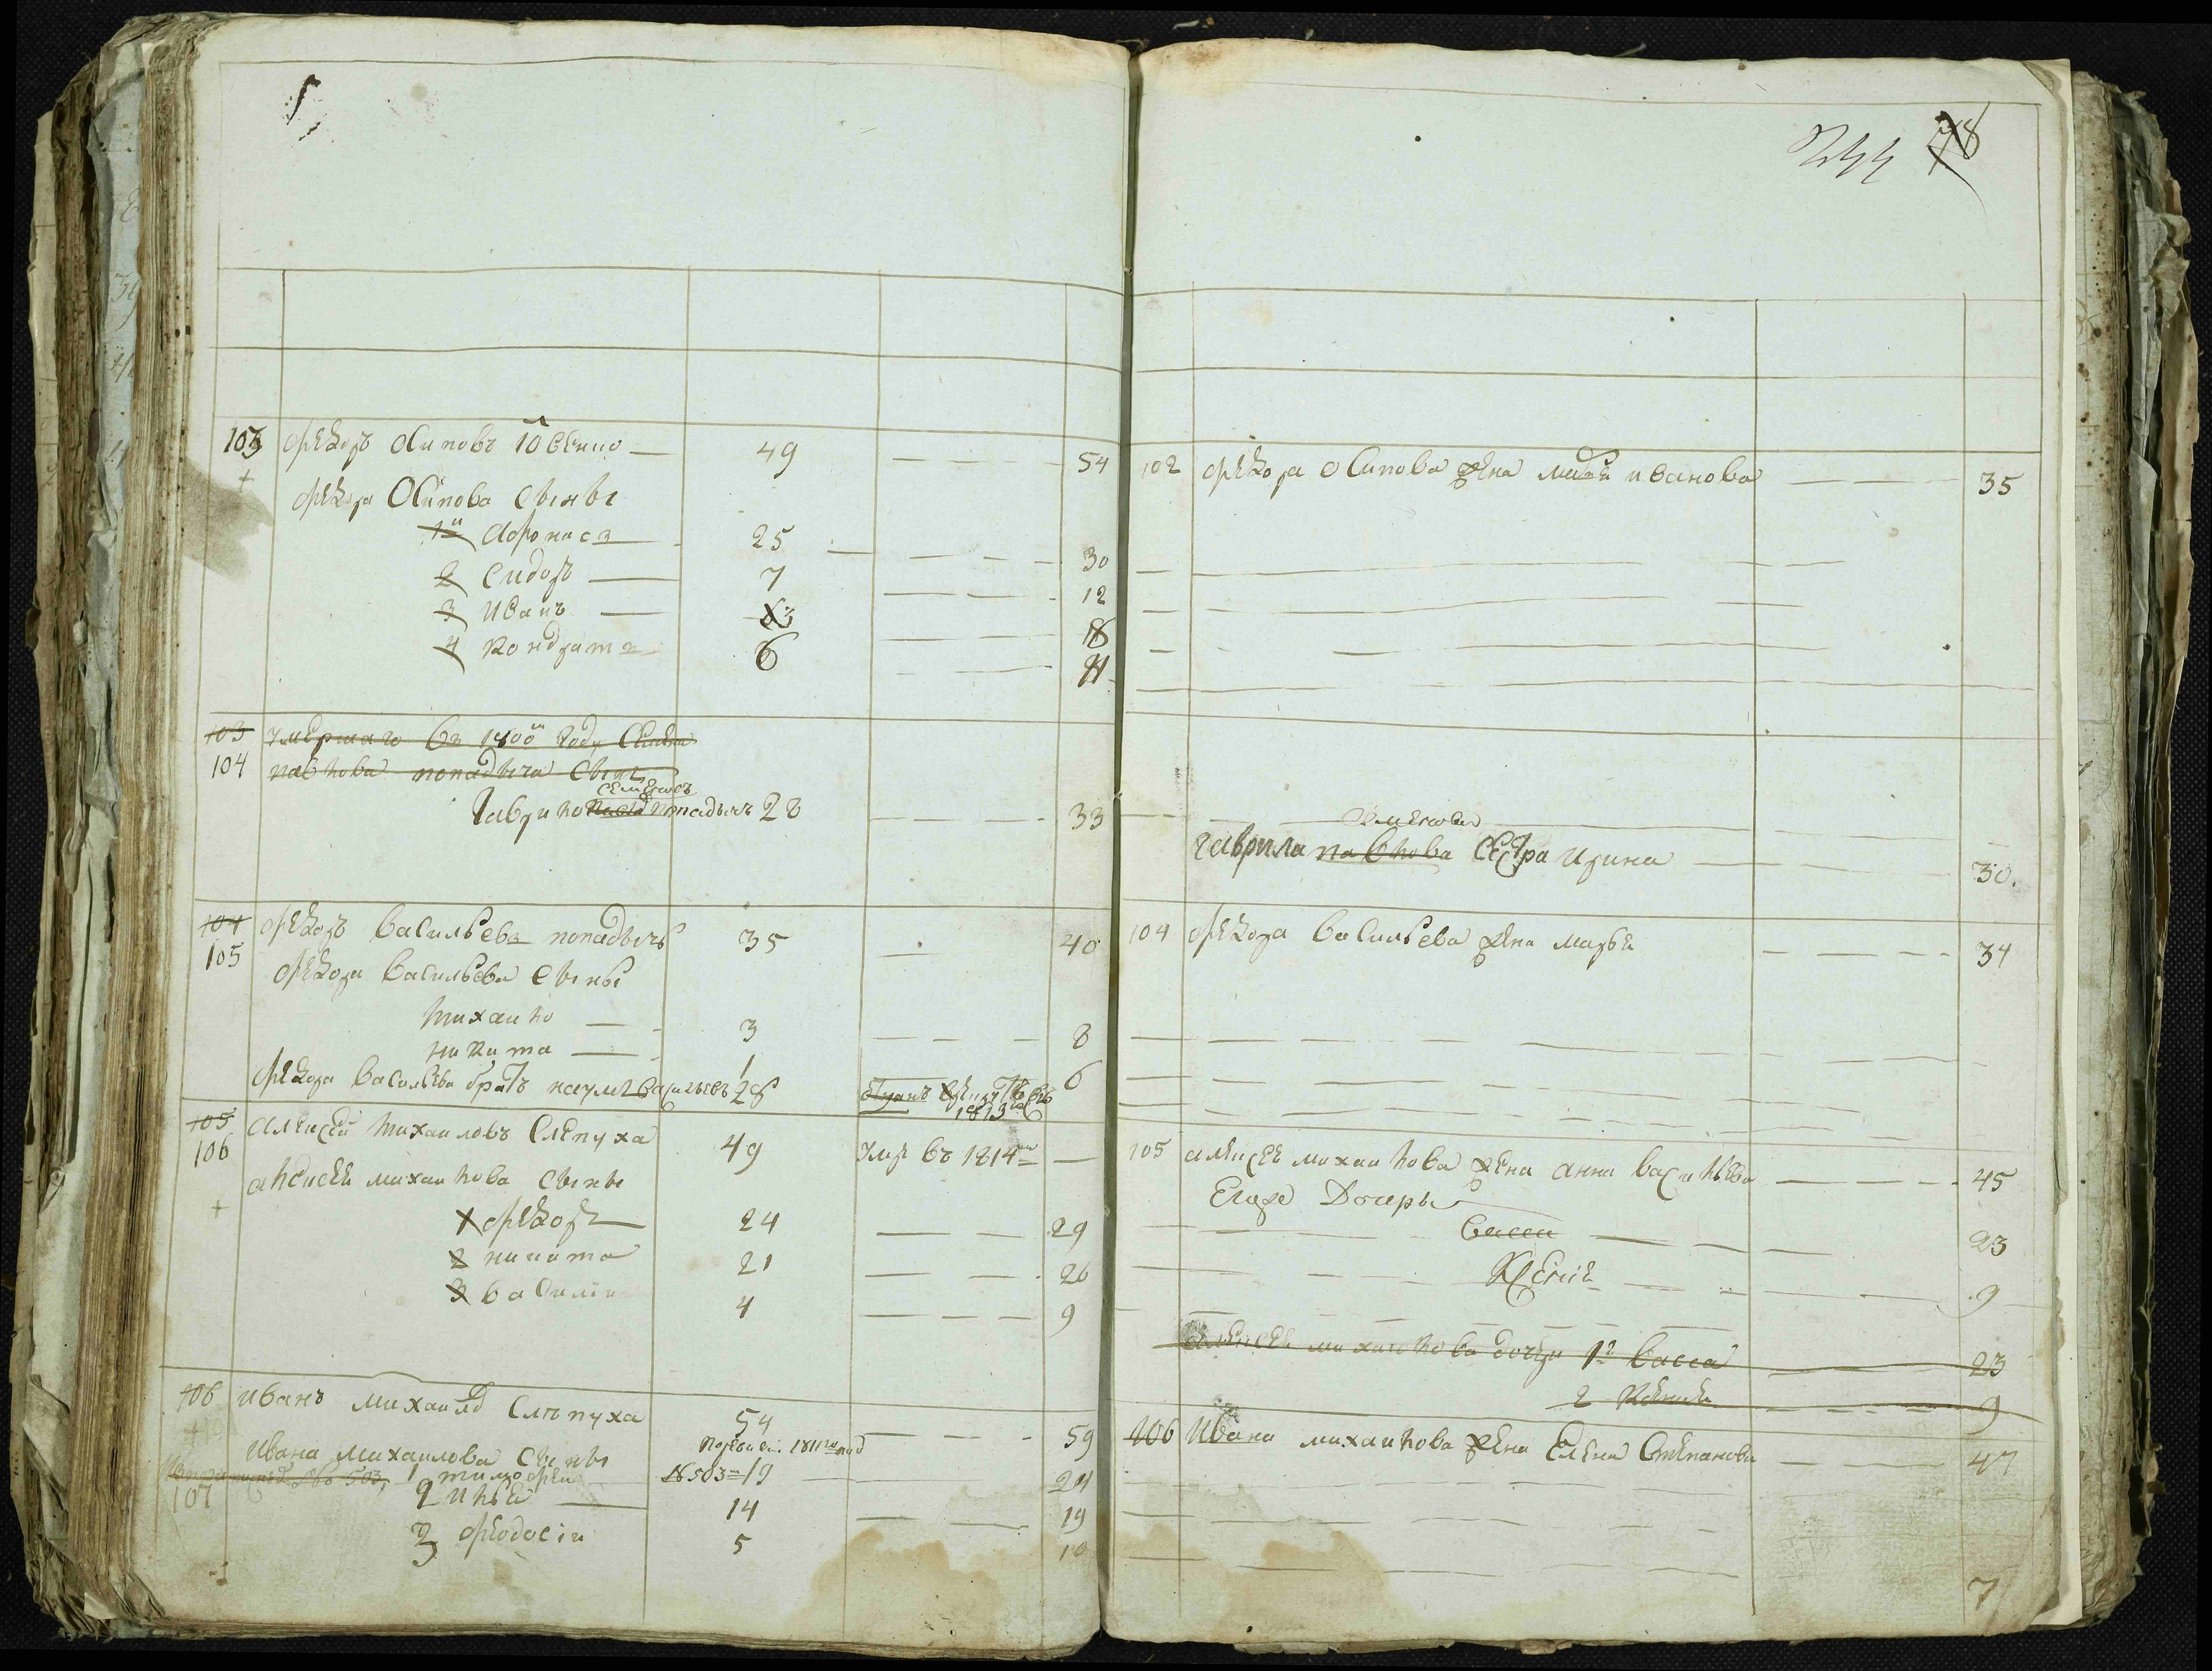 78
103 Федоръ Осиповъ 49 54
Федора Осипова сыны
1й Афонасэ 25 30
2 Сидоръ 7 12
3 Иванъ 13 18
4 Кондратъ 6 11
103 умершаго въ 1800м году
104 павлова попадыча сынъ
семеновъ
Гаврило попадычъ 28 33
104 Федоръ Васильевъ попадычъ 35 40
105 Федора Васильева сыны
михаило 3 8
никита 1 6
Федора Васильева братъ наумъ васильевъ 28 1813
105 алексей михаиловъ слепуха 49 1814
106 алексея михаилова сыны
1 Федоръ 24 29
2 никита 21 26
3 василии 4 9
106 иванъ михаи слепуха 54 59
Ивана михаилова сыны
503 1 тимофеи 19 24
107 2 илья 14 19
3 Федосiи 5 10
102 Федора Осипова жена иванова 35
семенова
гаврила павлова сестра ирина 30
104 Федора васильева жена марья 34
105 алексея михаилова жена анна васильева 45
Егоже дочери
васса 23
Ксения 9
алексея михаилова дочери 1я васса 23
2 9
106 Ивана михаилова жена Елена Степанова 47
7